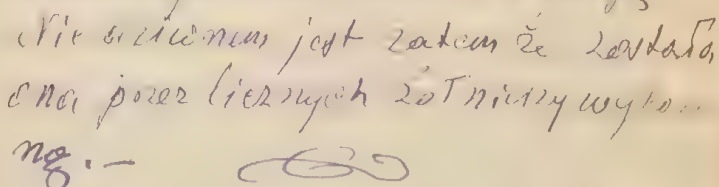 Nie        jest zatem że została
ona przez licznych żołnierzy wyko..
ną.—